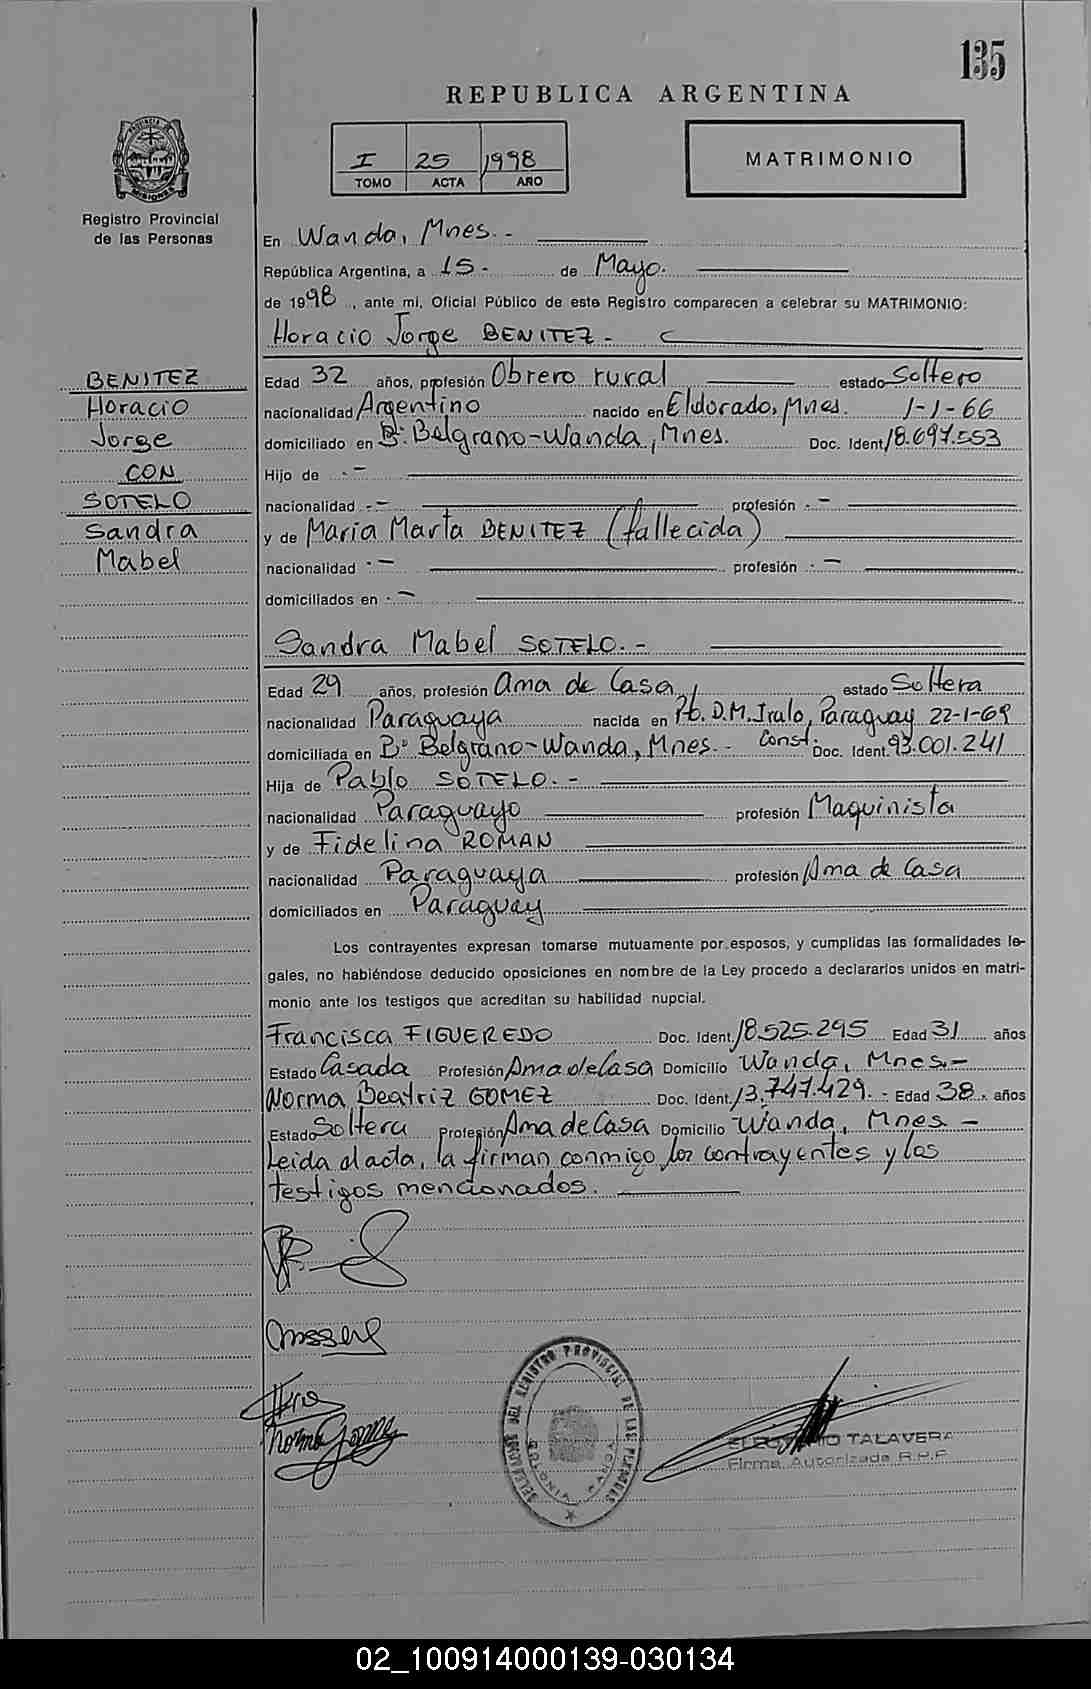 135
REPUBLICA ARGENTINA
I 25 1998
TOMO ACTA AÑO
MATRIMONIO
PROVINCIA DE MISIONES
Registro Provincial
de las Personas
En Wanda, Mnes. -
República Argentina, a 15 - de Mayo.
de 1998, ante mi, Oficial Público de este Registro comparecen a celebrar su MATRIMONIO:
Horacio Jorge BENITEZ -
BENITEZ
Horacio
Jorge
CON
SOTELO
Sandra
Mabel
Edad 32 años, profesión Obrero rural estado Soltero
nacionalidad Argentino nacido en Eldorado, Mnes. 1-1-66
domiciliado en B° Belgrano-Wanda, Mnes. Doc. Ident. 18.697.553
Hijo de - -
nacionalidad - - profesión - -
y de Maria Marta BENITEZ (fallecida)
nacionalidad - - profesión - -
domiciliados en - -
Sandra Mabel SOTELO. -
Edad 29 años, profesión Ama de Casa estado Soltera
nacionalidad Paraguaya nacida en Pto. D.M. Iralo, Paraguay 22-1-69
domiciliada en B° Belgrano-Wanda, Mnes. - Const. Doc. Ident. 93.001.241
Hija de Pablo SOTELO. -
nacionalidad Paraguayo profesión Maquinista
y de Fidelina ROMAN
nacionalidad Paraguaya profesión Ama de Casa
domiciliados en Paraguay
Los contrayentes expresan tomarse mutuamente por esposos, y cumplidas las formalidades le-
gales, no habiéndose deducido oposiciones en nombre de la Ley procedo a declararlos unidos en matri-
monio ante los testigos que acreditan su habilidad nupcial.
Francisca FIGUEREDO Doc. Ident. 18.525.295 Edad 31 años
Estado Casada Profesión Ama de Casa Domicilio Wanda, Mnes. -
Norma Beatriz GOMEZ Doc. Ident. 13.747.429. - Edad 38. años
Estado Soltera Profesión Ama de Casa Domicilio Wanda, Mnes -
Leida el acta, la firman conmigo los contrayentes y los
testigos mencionados.
Norma Gomez
DEL REGISTRO PROVINCIAL DE LAS PERSONAS
COLONIA WANDA
TALAVERA
Firma Autorizada R.P.P.
02_100914000139-030134